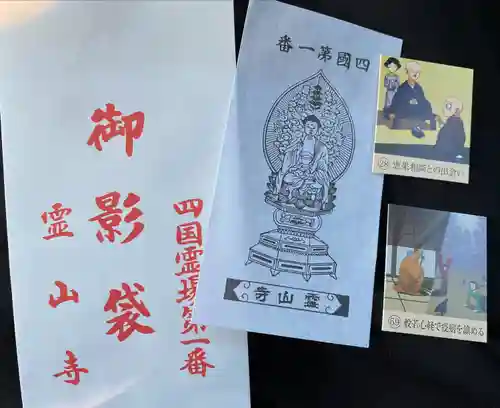 御影袋
四国霊場第一番
霊山寺
四國第一番
霊山寺
㉘ 恵果和尚との出会い
㊾ 般若心経で疫病を鎮める